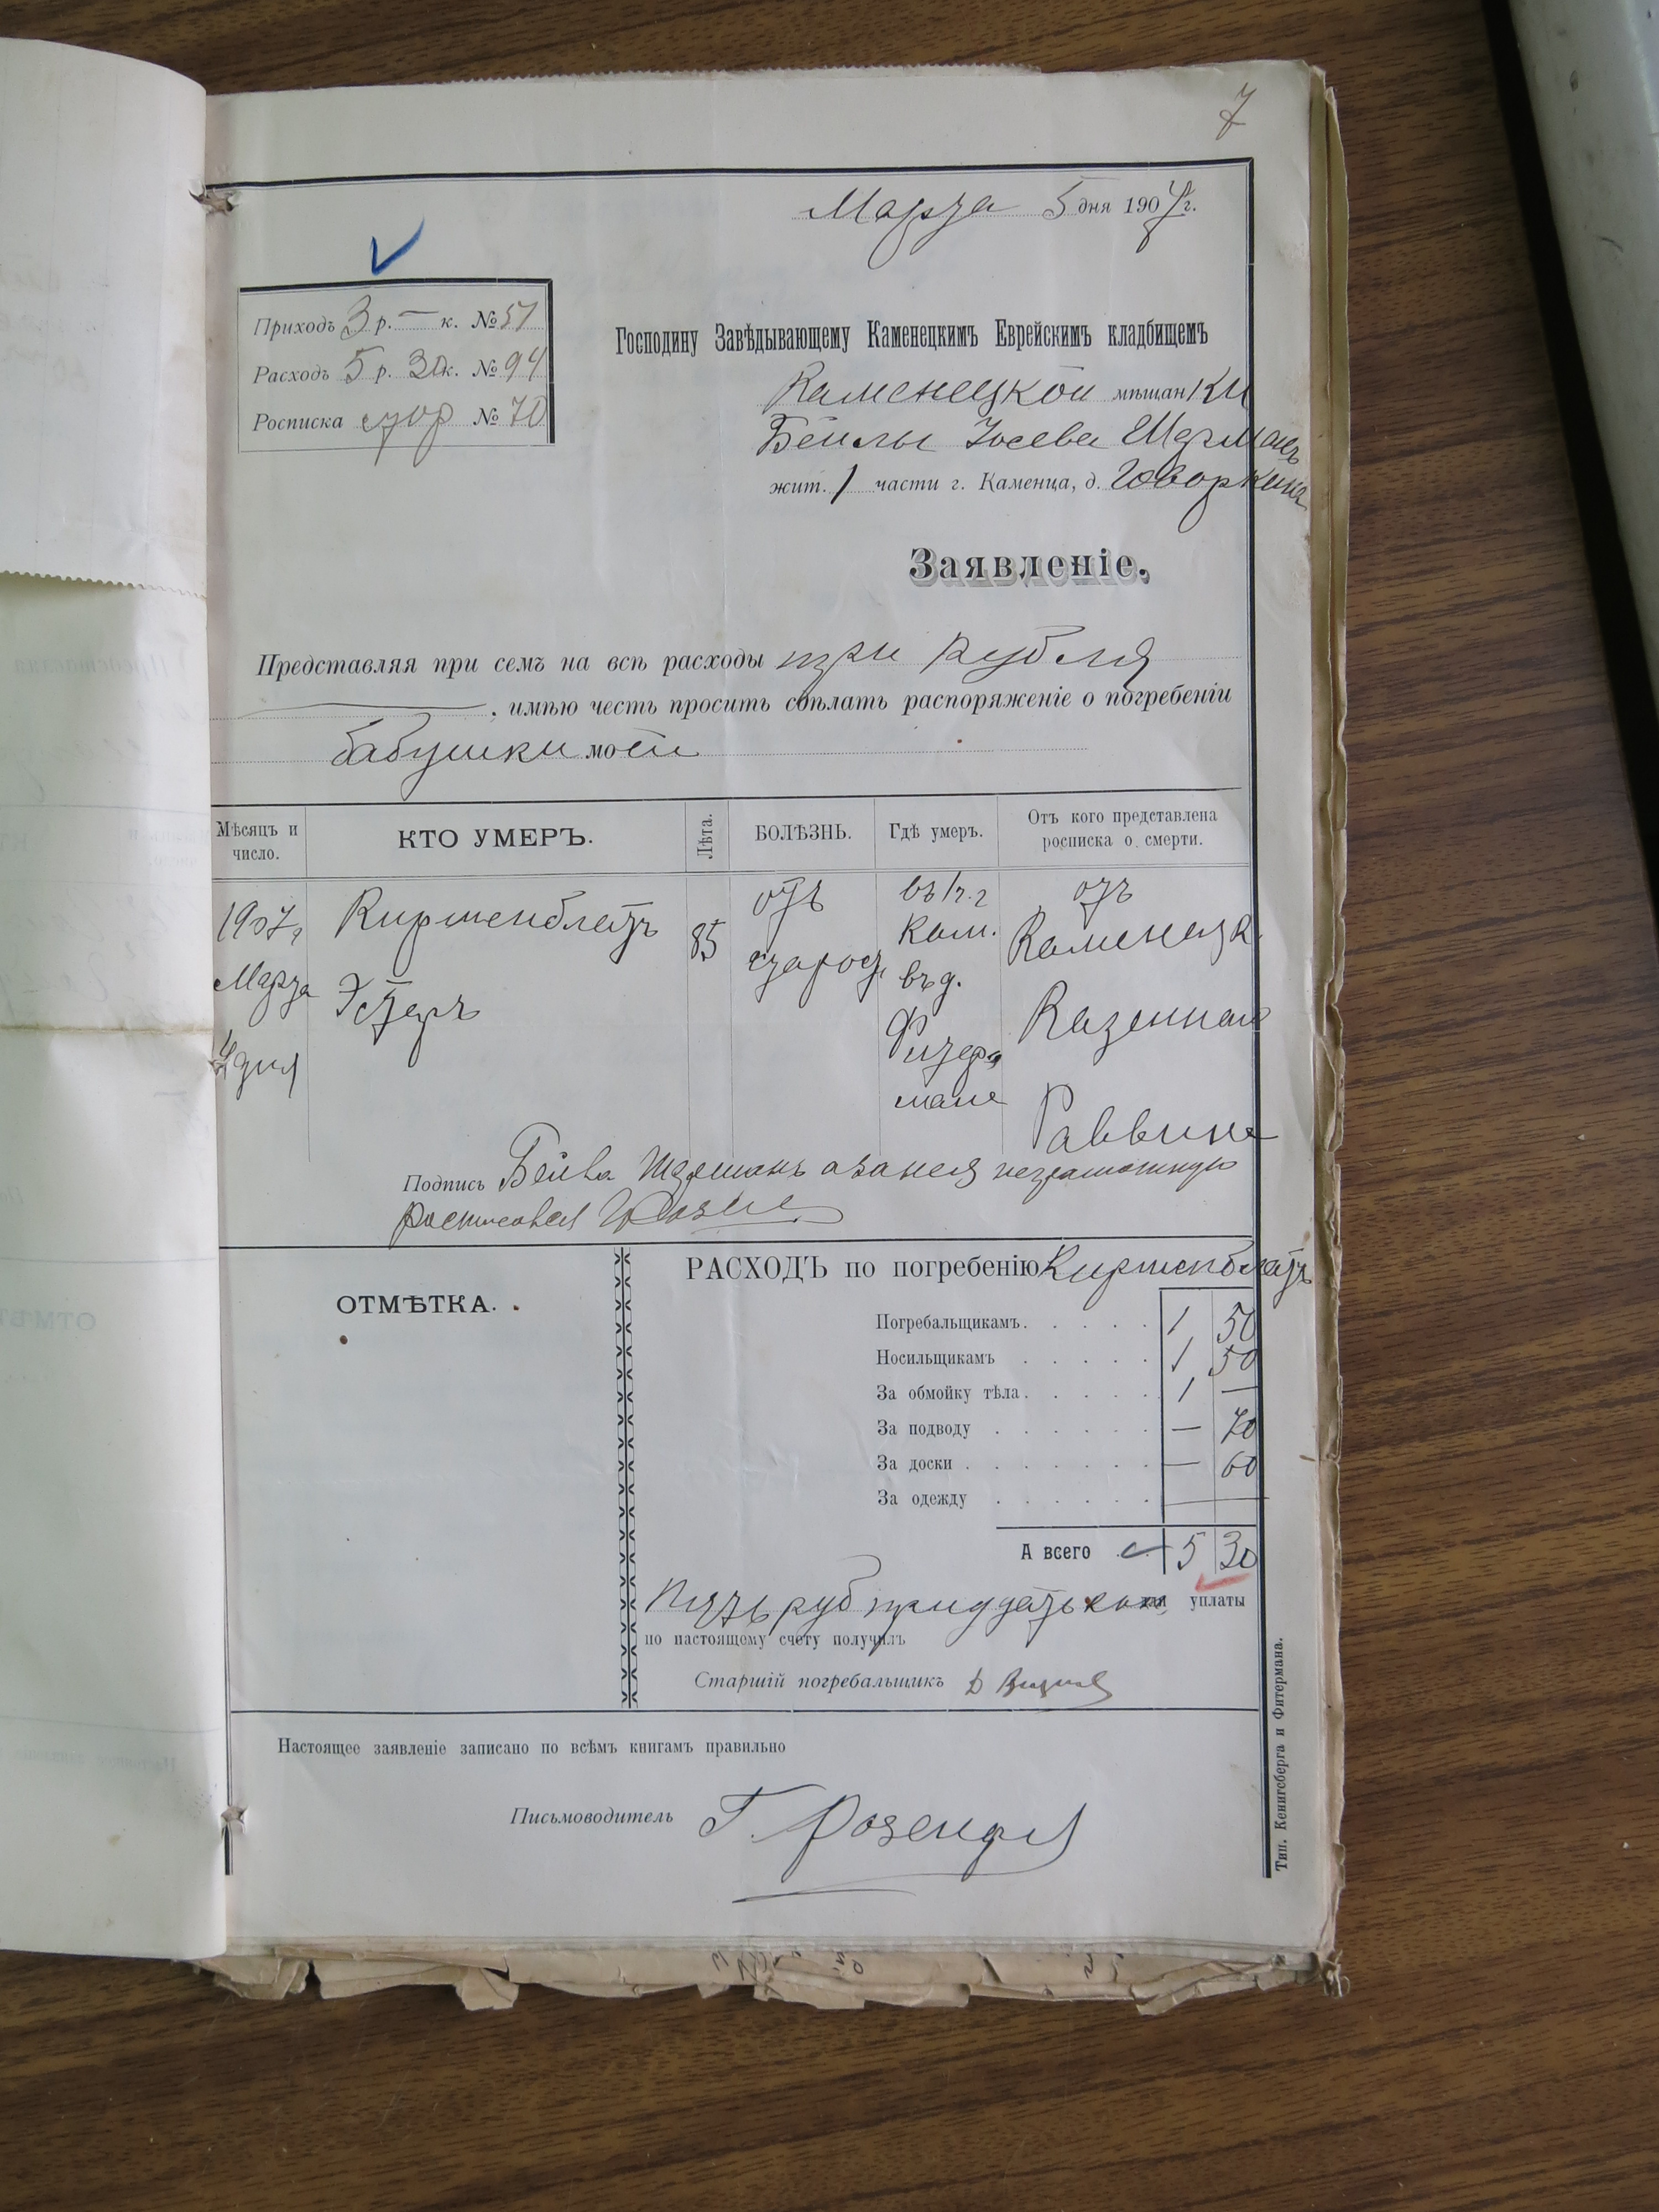 7
Марта 5 дня 1907 г.
Приходъ 3 р. — к. № 51
Расходъ 5 р. 30 к. № 94
Росписка № 70
Господину Завѣдывающему Каменецкимъ Еврейскимъ кладбищемъ
Каменецкой мѣщанки
Бейлы Іосева Шерманъ
жит. 1 части г. Каменца, д. Говоркина
Заявленіе.
Представляя при семъ на всѣ расходы три рубля
, имѣю честь просить сдѣлать распоряженіе о погребеніи
бабушки моей
Мѣсяцъ и число.
КТО УМЕРЪ.
Лѣта.
БОЛѢЗНЬ.
Гдѣ умеръ.
Отъ кого представлена росписка о смерти.
1907 г
Марта
4 дня
Киршенблатъ
Эстеръ
85
отъ
старост
въ 1 ч. г
Кам.
въ д.
Фитер
мана
отъ
Каменецк.
Казеннаго
Раввина
Подпись Бейла Шерманъ а за нея неграмотную
росписовся
ОТМѢТКА.
РАСХОДЪ по погребенію Киршенблатъ
Погребальщикамъ. 1 50
Носильщикамъ 1 50
За обмойку тѣла. 1 —
За подводу — 70
За доски — 60
За одежду —
А всего 5 30
Пять руб тридцать коп. уплаты
по настоящему счету получилъ
Старшій погребальщикъ
Настоящее заявленіе записано по всѣмъ книгамъ правильно
Письмоводитель Г. Розен
Тип. Кенигсберга и Фитермана.